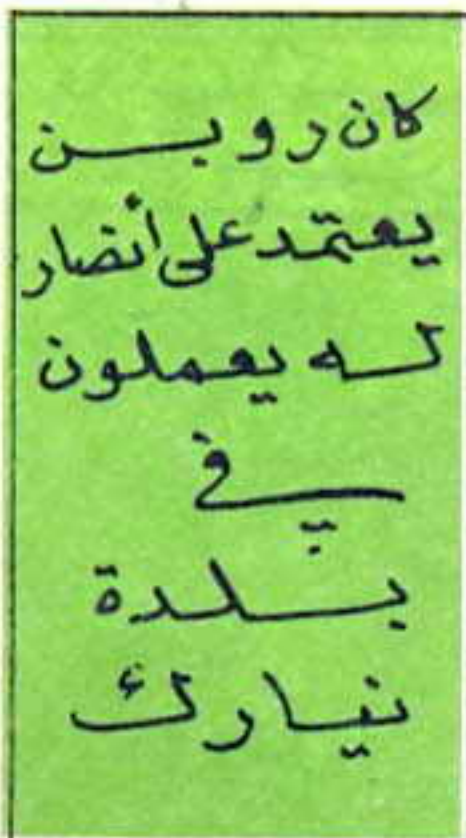 كان روبن
يعتمد على أنصار
له يعملون
في
بلدة
نيارك